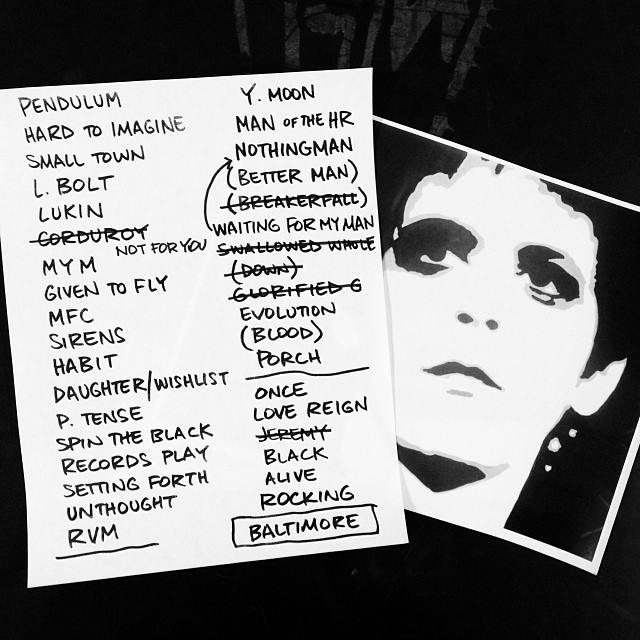 PENDULUM
HARD TO IMAGINE
SMALL TOWN
L. BOLT
LUKIN
CORDUROY
NOT FOR YOU
MYM
GIVEN TO FLY
MFC
SIRENS
HABIT
DAUGHTER/WISHLIST
P. TENSE
SPIN THE BLACK
RECORDS PLAY
SETTING FORTH
UNTHOUGHT
RVM
Y. MOON
MAN OF THE HR
NOTHINGMAN
(BETTER MAN)
(BREAKERFALL)
WAITING FOR MY MAN
SWALLOWED WHOLE
(DOWN)
GLORIFIED G
EVOLUTION
(BLOOD)
PORCH
ONCE
LOVE REIGN
JEREMY
BLACK
ALIVE
ROCKING
BALTIMORE